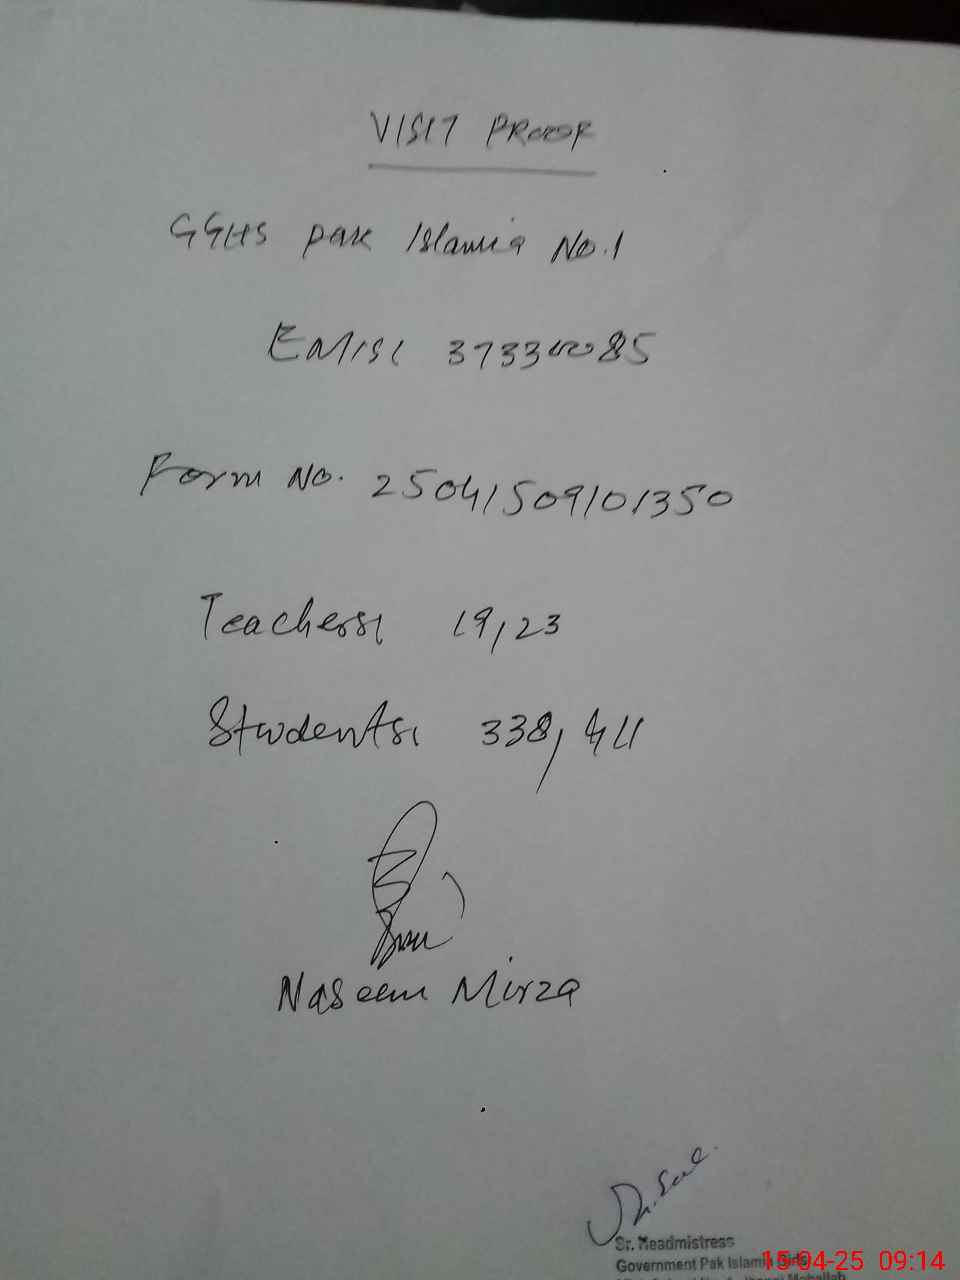 VISIT PROOF
GGHS Pak Islamia No.1
EMIS: 37330085
Form No. 25041509101350
Teachers: 19,23
Students: 338, 411
Naseem Mirza
Sr. Headmistress
Government Pak Islamia Girls
15-04-25 09:14